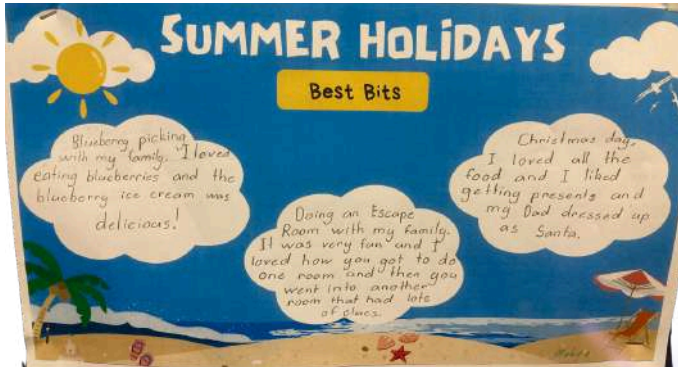 SUMMER HOLiDAYS
Best Bits
Blueberry picking
with my family. I loved
eating blueberries and the
blueberry ice cream was
delicious!
Doing an Escape
Room with my family.
It was very fun and I
loved how you got to do
one room and then you
went into another
room that had lots
of clues.
Christmas day,
I loved all the
food and I liked
getting presents and
my Dad dressed up
as Santa.